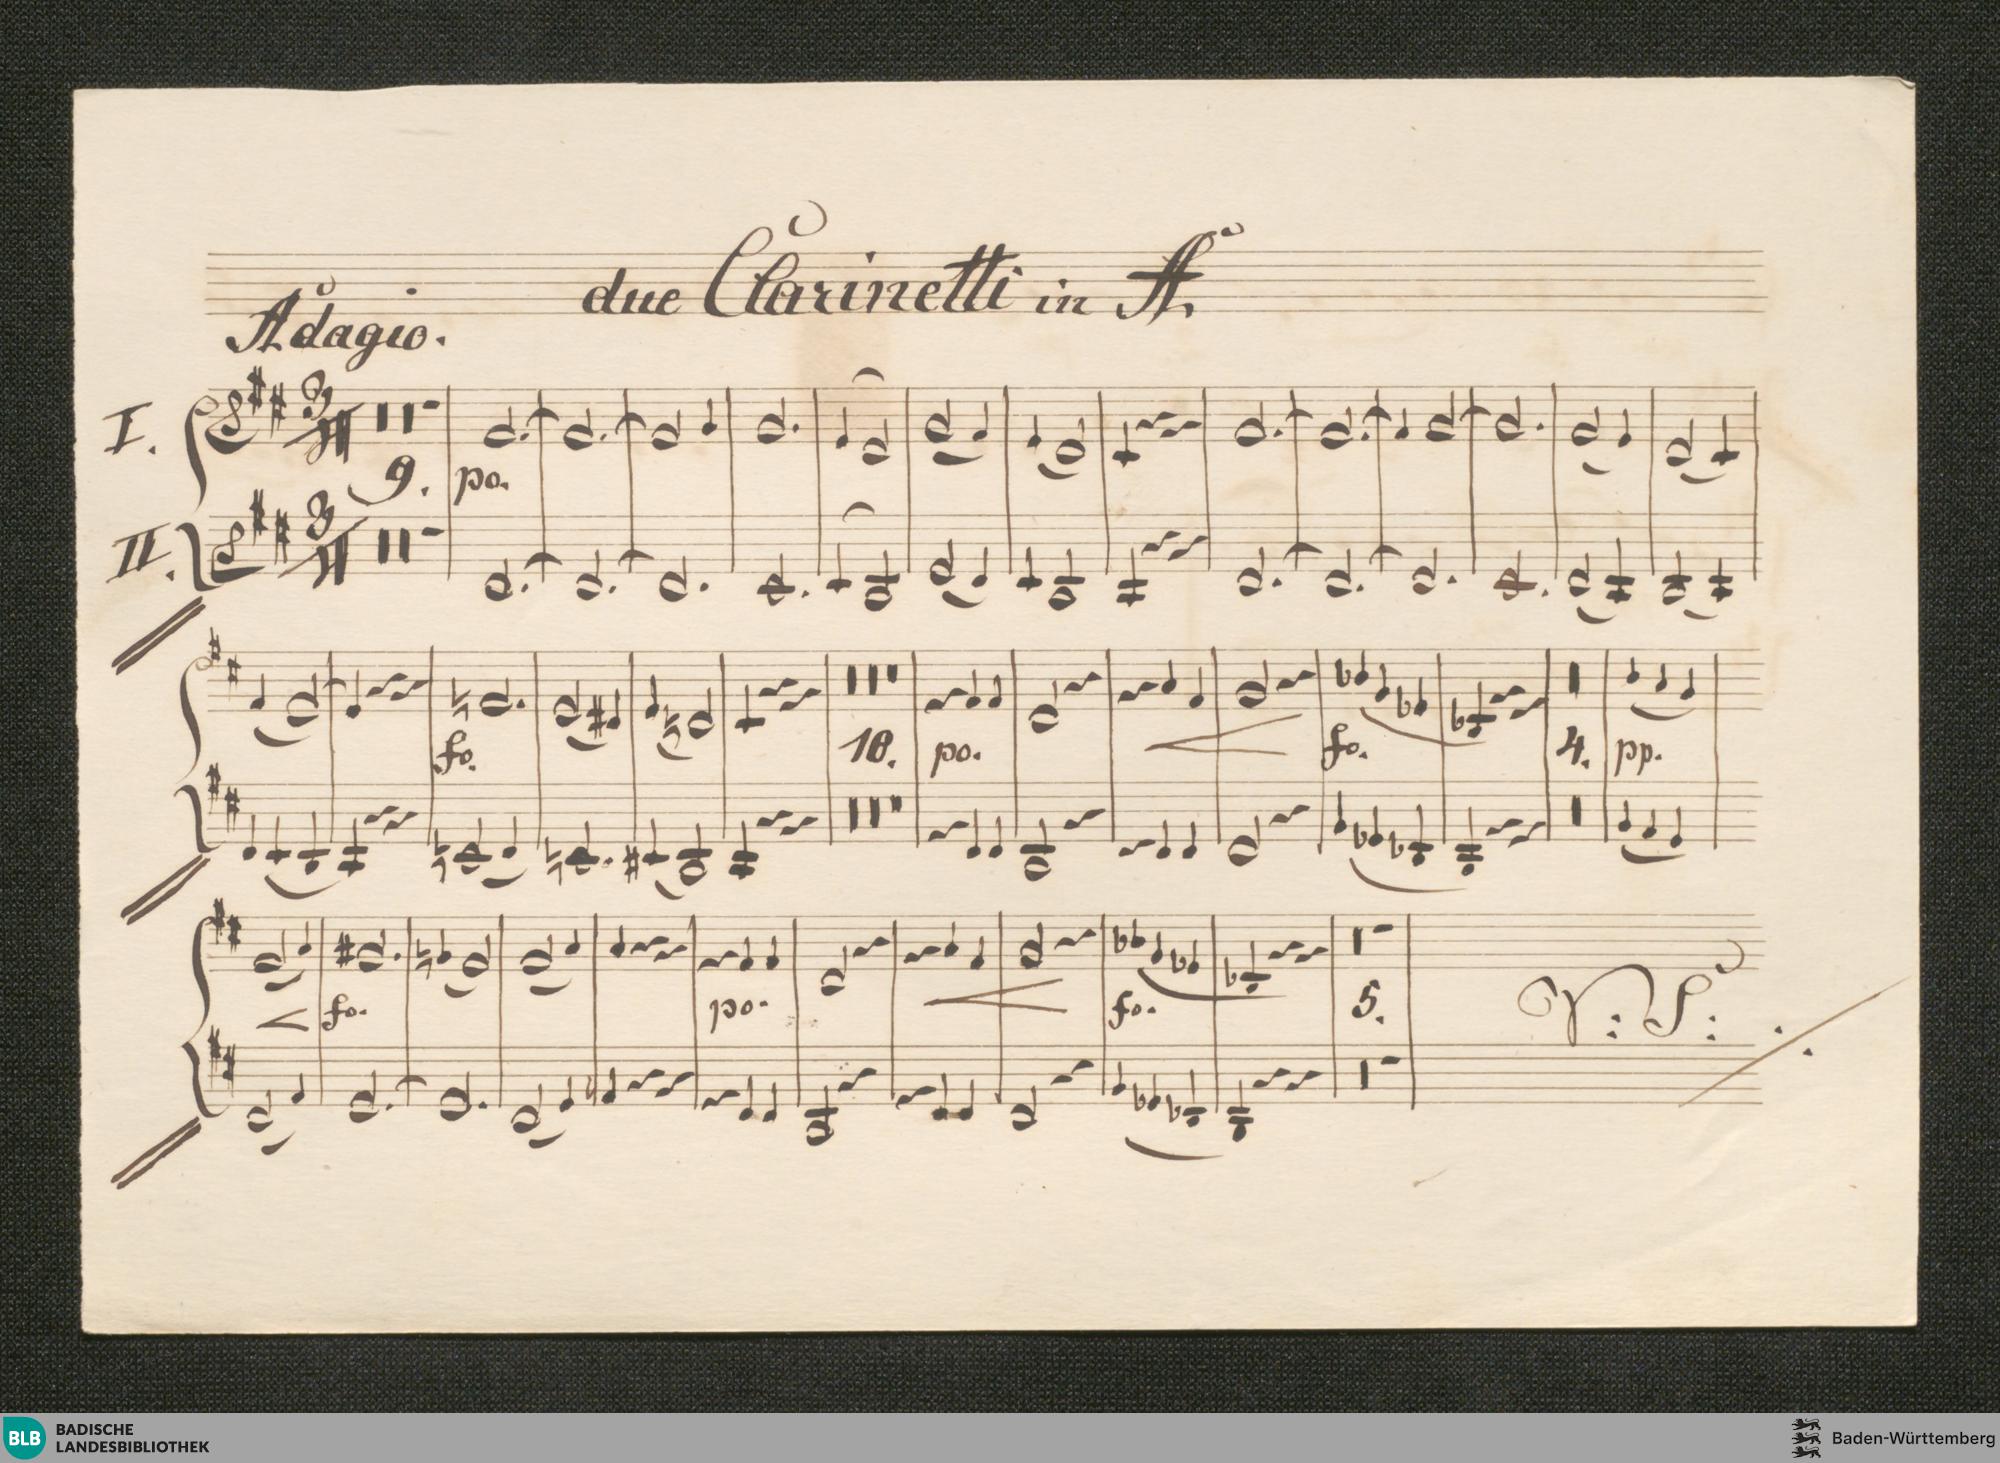 due Clarinetti in A.
Adagio.
I.
3/4
9. po.
II.
3/4
fo. 10. po. fo. 4. pp.
fo. po. fo. 5. V: S:
BLB BADISCHE
LANDESBIBLIOTHEK
Baden-Württemberg